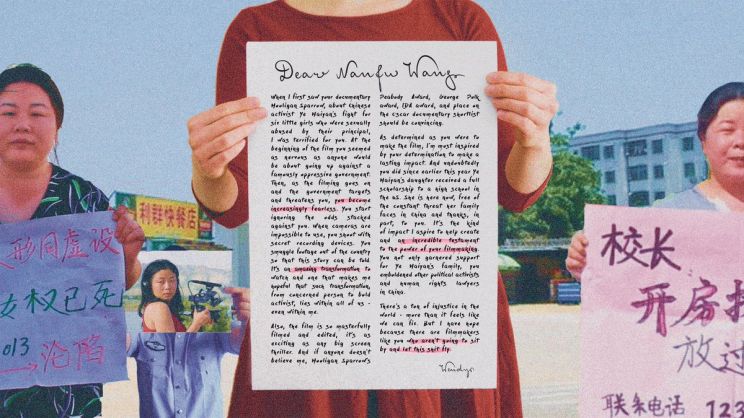 Dear Nanfu Wang,
When I first saw your documentary
Hooligan Sparrow, about Chinese
activist Ye Haiyan's fight for
six little girls who were sexually
abused by their principal,
I was terrified for you. At the
beginning of the film you seemed
as nervous as anyone would
be about going up against a
famously oppressive government.
Then, as the filming goes on
and the government targets
and threatens you, you become
increasingly fearless. You start
ignoring the odds stacked
against you. When cameras are
impossible to use, you shoot with
secret recording devices. You
smuggle footage out of the country
so that this story can be told.
It's an amazing transformation to
watch and one that makes me
hopeful that such transformation,
from concerned person to bold
activist, lies within all of us -
even within me.
Also, the film is so masterfully
filmed and edited, it's as
exciting as any big screen
thriller. And if anyone doesn't
believe me, Hooligan Sparrow's
Peabody Award, George Polk
award, IDA award, and place on
the oscar documentary shortlist
should be convincing.
As determined as you were to
make the film, I'm most inspired
by your determination to make a
lasting impact. And undoubtedly
you did since earlier this year Ye
Haiyan's daughter received a full
scholarship to a high school in
the us. She is here now, free of
the constant threat her family
faces in China and thanks, in
part, to you. It's the kind
of impact I aspire to help create
and an incredible testament
to the power of your filmmaking.
You not only garnered support
for Ye Haiyan's family, you
emboldened other political activists
and human rights lawyers
in China.
There's a ton of injustice in the
world - more than it feels like
we can fix. But I have hope
because there are filmmakers
like you who aren't going to sit
by and let this shit fly.
利群快餐店
形同虚设
女权已死
013
沦陷
校长
开房找
放过
联系电话 123